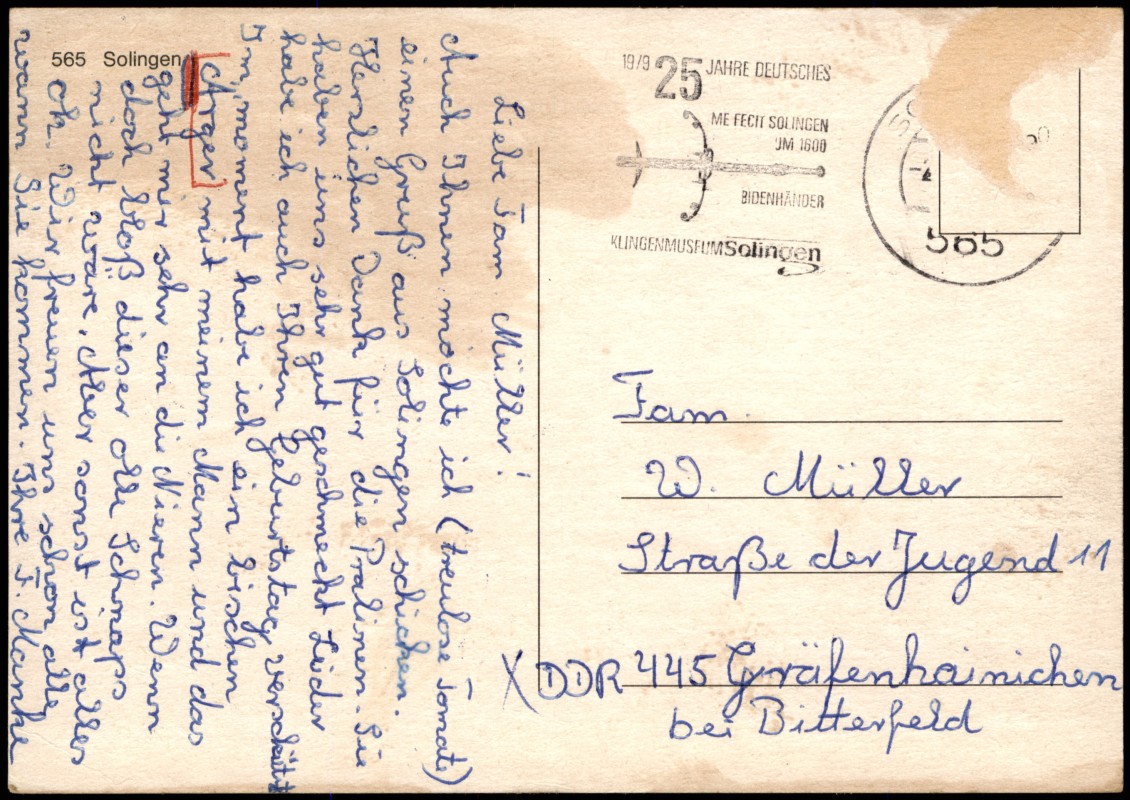 565 Solingen
Liebe Fam. Müller!
Auch Ihnen möchte ich (treulose Tomate)
einen Gruß aus Solingen schicken.
Herslichen Dank für die Pralinen. Sie
haben uns sehr gut geschmeckt Leider
habe ich auch Ihren Geburtstag verschützt
Im moment habe ich ein bischen
Arger mit meinem Mann und das
geht mir sehr an die Nieren. Wenn
doch bloß dieser olle Schnaps
nicht wäre. Aber sonst ist alles
ok. Wir freuen uns schon alle
wann Sie kommen. Ihre F. Manke
1979
25 JAHRE DEUTSCHES
ME FECIT SOLINGEN
JM 1600
BIDENHÄNDER
KLINGENMUSEUM Solingen
565
Fam.
W. Müller
Straße der Jugend 11
X DDR 445 Gräfenhainichen
bei Bitterfeld